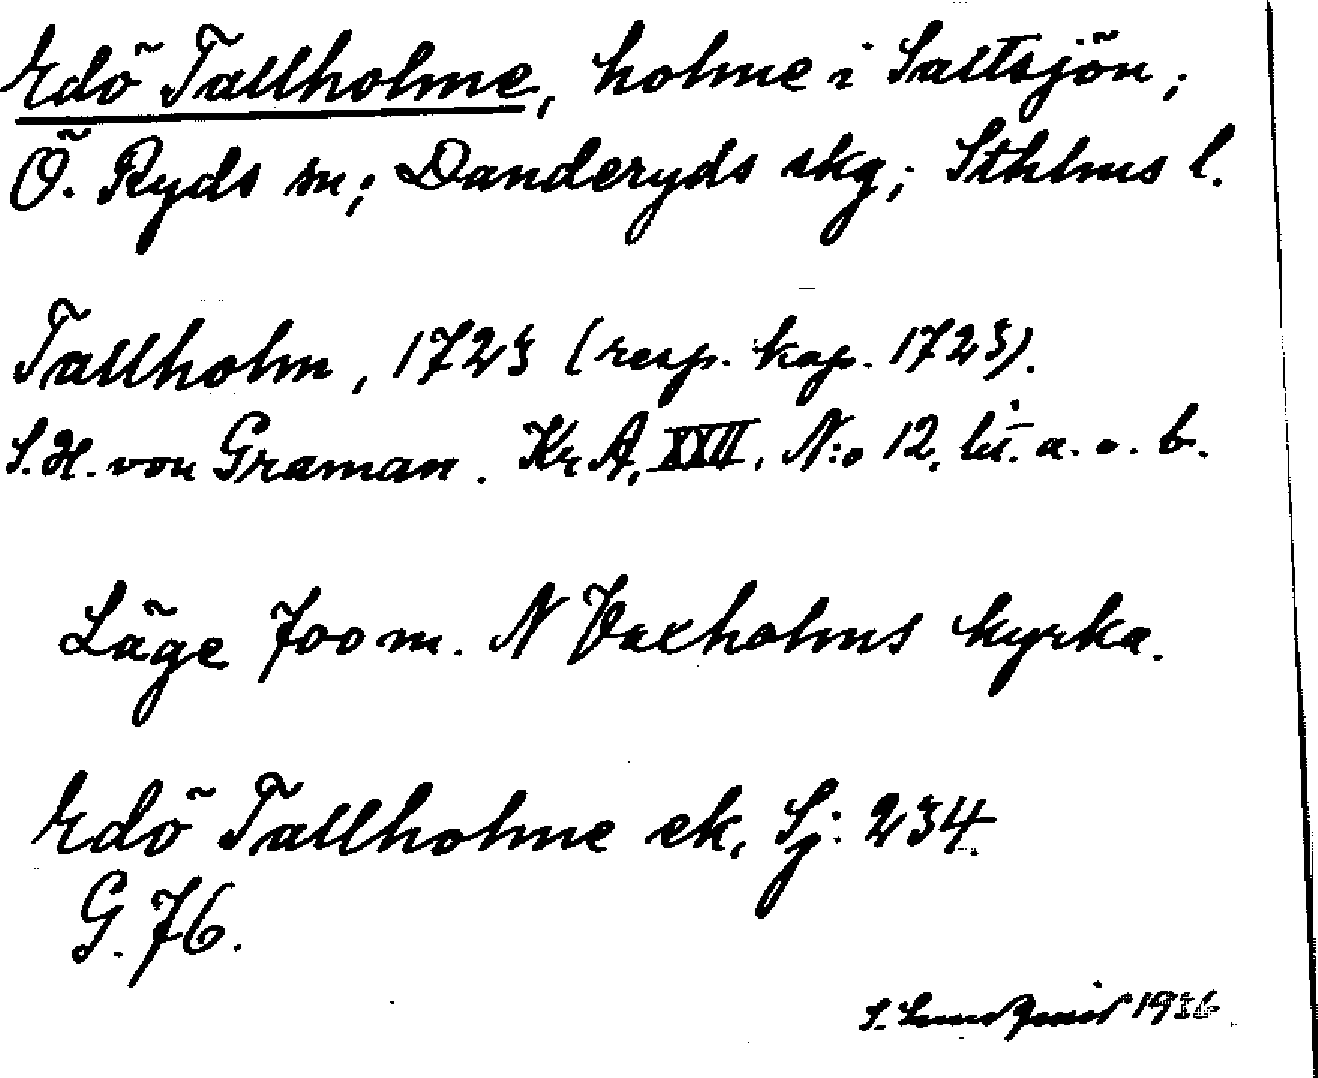 Edö Tallholme, holme i Saltsjön;
Ö. Ryds sn; Danderyds skg; Sthlms l.
Tallholm, 1723 (resp. kop. 1723).
S.H. von Graman. Kr A, XXII, N:o 12, lit. a. o. b.
Läge 700 m. N Vaxholms kyrka.
Edö Tallholme ek, Sj: 234.
G. 76.
S. Lundqvist 1936